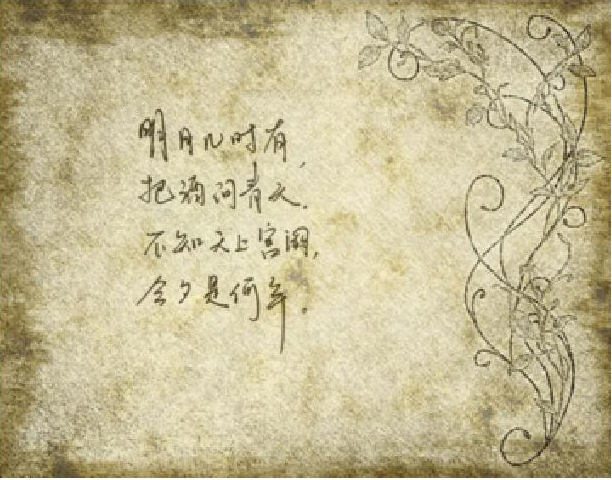 明月几时有,
把酒问青天.
不知天上宫阙,
今夕是何年。